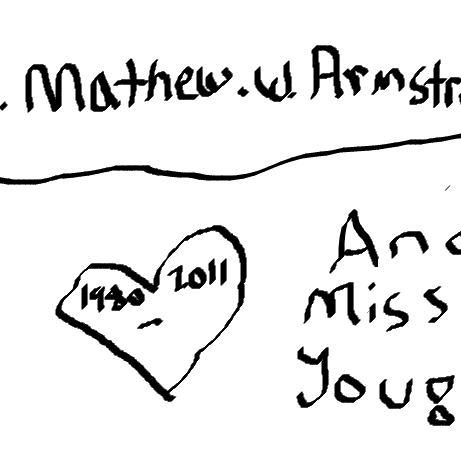 . Mathew. W. Armstr
2011
An
Miss
Youg